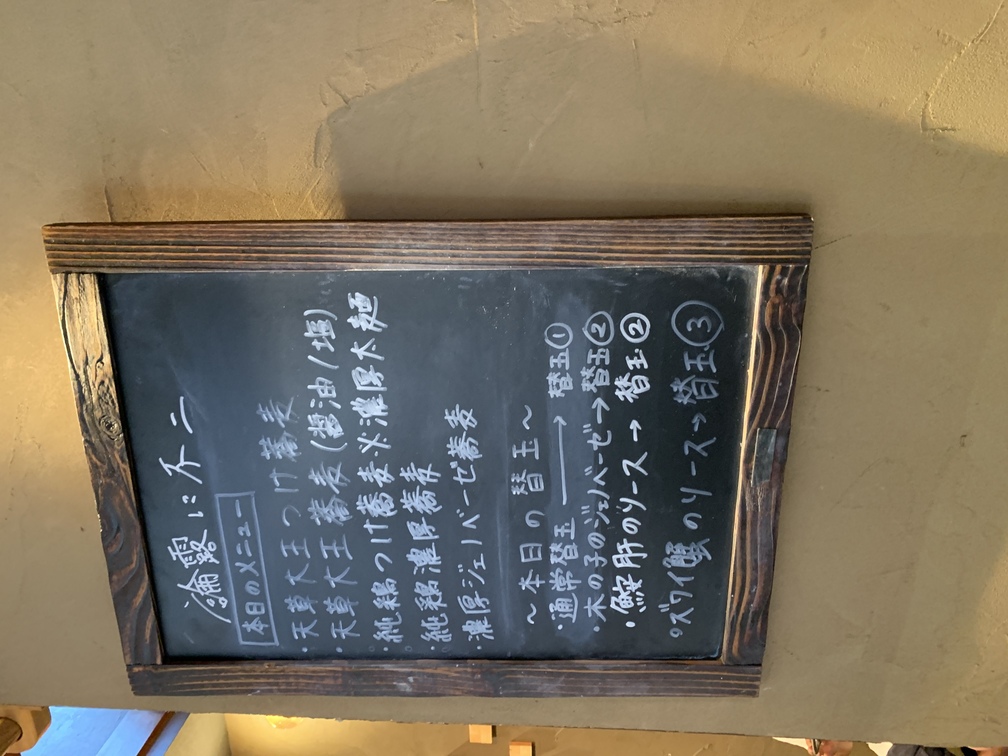 本日のメニュー
・天草大王つけ蕎麦
・天草大王蕎麦(醤油/塩)
・純鶏つけ蕎麦※濃厚太麺
・純鶏濃厚蕎麦
・濃厚ジェノベーゼ蕎麦
～本日の替玉～
・通常替玉→替玉①
・木の子のジェノベーゼ→替玉②
・鮟肝のソース→替玉②
。ズワイ蟹のソース→替玉③